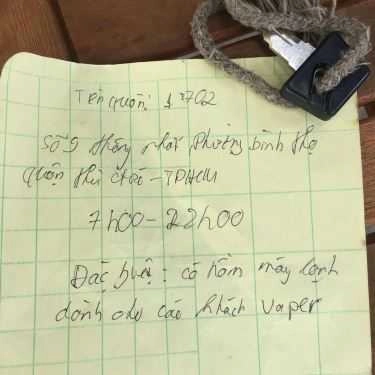 Tên quán: 1702
Số 9 thống nhất phường bình thọ
quận thủ đức - TPHCM
7h00 - 22h00
Đặc biệt: có hầm máy lạnh
dành cho các khách vaper